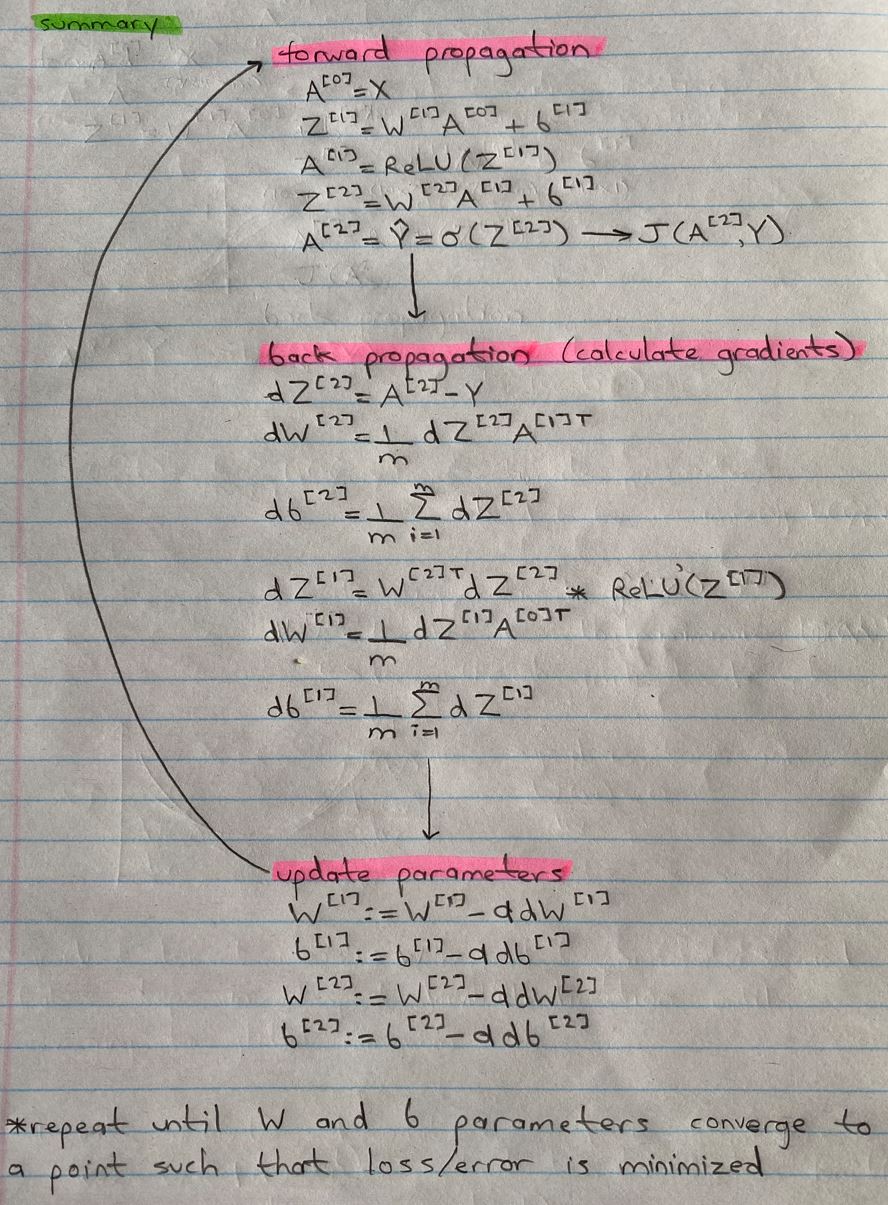 summary
forward propagation
A[0]=X
Z[1]=W[1]A[0]+b[1]
A[1]=ReLU(Z[1])
Z[2]=W[2]A[1]+b[1]
A[2]=Ŷ=σ(Z[2])→J(A[2],Y)
back propagation (calculate gradients)
dZ[2]=A[2]-Y
dW[2]=1/m dZ[2]A[1]T
db[2]=1/m Σ_{i=1}^{m} dZ[2]
dZ[1]=W[2]TdZ[2] * ReLU'(Z[1])
dW[1]=1/m dZ[1]A[0]T
db[1]=1/m Σ_{i=1}^{m} dZ[1]
update parameters
W[1]:=W[1]-αdW[1]
b[1]:=b[1]-αdb[1]
W[2]:=W[2]-αdW[2]
b[2]:=b[2]-αdb[2]
*repeat until W and b parameters converge to
a point such that loss/error is minimized